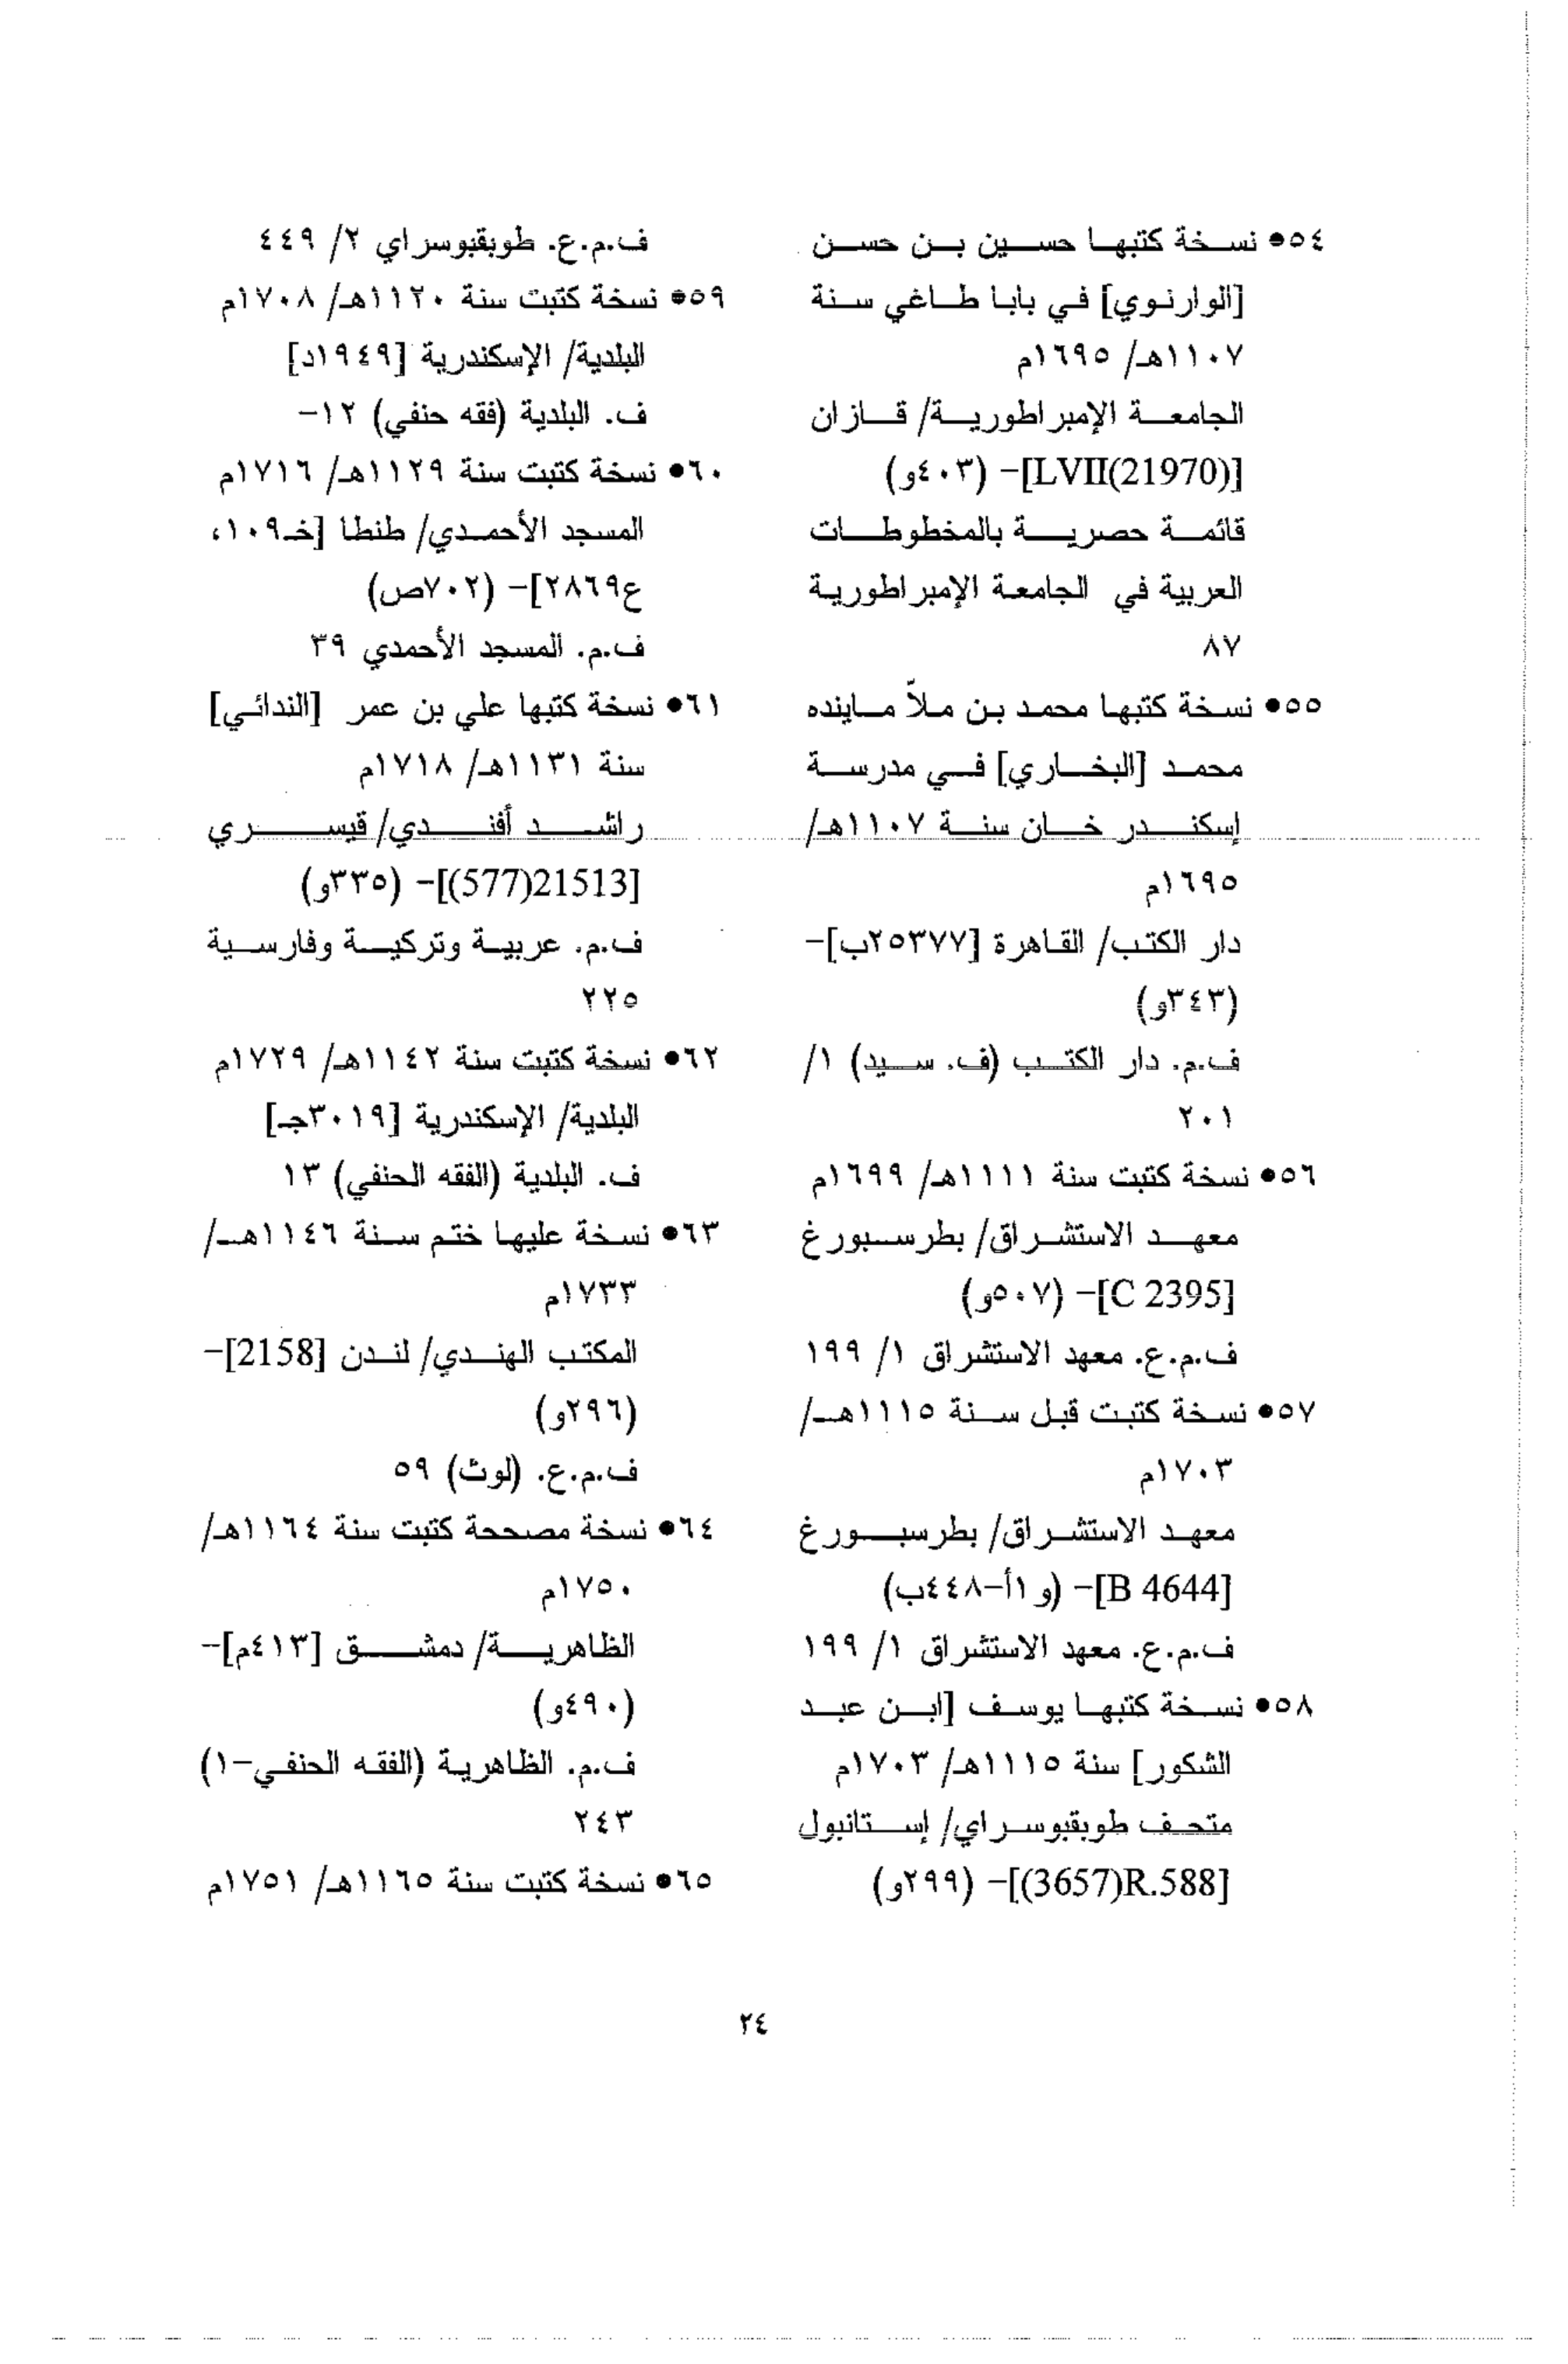 ٥٤● نسخة كتبها حسين بن حسن
[الوارنوي] في بابا طاغي سنة
١١٠٧هـ/ ١٦٩٥م
الجامعة الإمبراطورية/ قازان
[LVII(21970)]- (٤٠٣و)
قائمة حصرية بالمخطوطات
العربية في الجامعة الإمبراطورية
٨٧
٥٥● نسخة كتبها محمد بن ملاّ ماينده
محمد [البخاري] في مدرسة
إسكندر خان سنة ١١٠٧هـ/
١٦٩٥م
دار الكتب/ القاهرة [٢٥٣٧٧ب]-
(٣٤٣و)
ف.م. دار الكتب (ف. سيد) ١/
٢٠١
٥٦● نسخة كتبت سنة ١١١١هـ/ ١٦٩٩م
معهد الاستشراق/ بطرسبورغ
[C 2395]- (٥٠٧و)
ف.م.ع. معهد الاستشراق ١/ ١٩٩
٥٧● نسخة كتبت قبل سنة ١١١٥هـ/
١٧٠٣م
معهد الاستشراق/ بطرسبورغ
[B 4644]- (و ١أ-٤٤٨ب)
ف.م.ع. معهد الاستشراق ١/ ١٩٩
٥٨● نسخة كتبها يوسف [ابن عبد
الشكور] سنة ١١١٥هـ/ ١٧٠٣م
متحف طوبقبوسراي/ إستانبول
[R.588(3657)]- (٢٩٩و)
ف.م.ع. طوبقبوسراي ٢/ ٤٤٩
٥٩● نسخة كتبت سنة ١١٢٠هـ/ ١٧٠٨م
البلدية/ الإسكندرية [١٩٤٩د]
ف. البلدية (فقه حنفي) ١٢-
٦٠● نسخة كتبت سنة ١١٢٩هـ/ ١٧١٦م
المسجد الأحمدي/ طنطا [خـ١٠٩،
ع٢٨٦٩]- (٧٠٢ص)
ف.م. المسجد الأحمدي ٣٩
٦١● نسخة كتبها علي بن عمر [الندائي]
سنة ١١٣١هـ/ ١٧١٨م
راشد أفندي/ قيسري
[21513(577)]- (٣٣٥و)
ف.م. عربية وتركية وفارسية
٢٢٥
٦٢● نسخة كتبت سنة ١١٤٢هـ/ ١٧٢٩م
البلدية/ الإسكندرية [٣٠١٩جـ]
ف. البلدية (الفقه الحنفي) ١٣
٦٣● نسخة عليها ختم سنة ١١٤٦هـ/
١٧٣٣م
المكتب الهندي/ لندن [2158]-
(٢٩٦و)
ف.م.ع. (لوث) ٥٩
٦٤● نسخة مصححة كتبت سنة ١١٦٤هـ/
١٧٥٠م
الظاهرية/ دمشق [٤١٣م]-
(٤٩٠و)
ف.م. الظاهرية (الفقه الحنفي-١)
٢٤٣
٦٥● نسخة كتبت سنة ١١٦٥هـ/ ١٧٥١م
٢٤